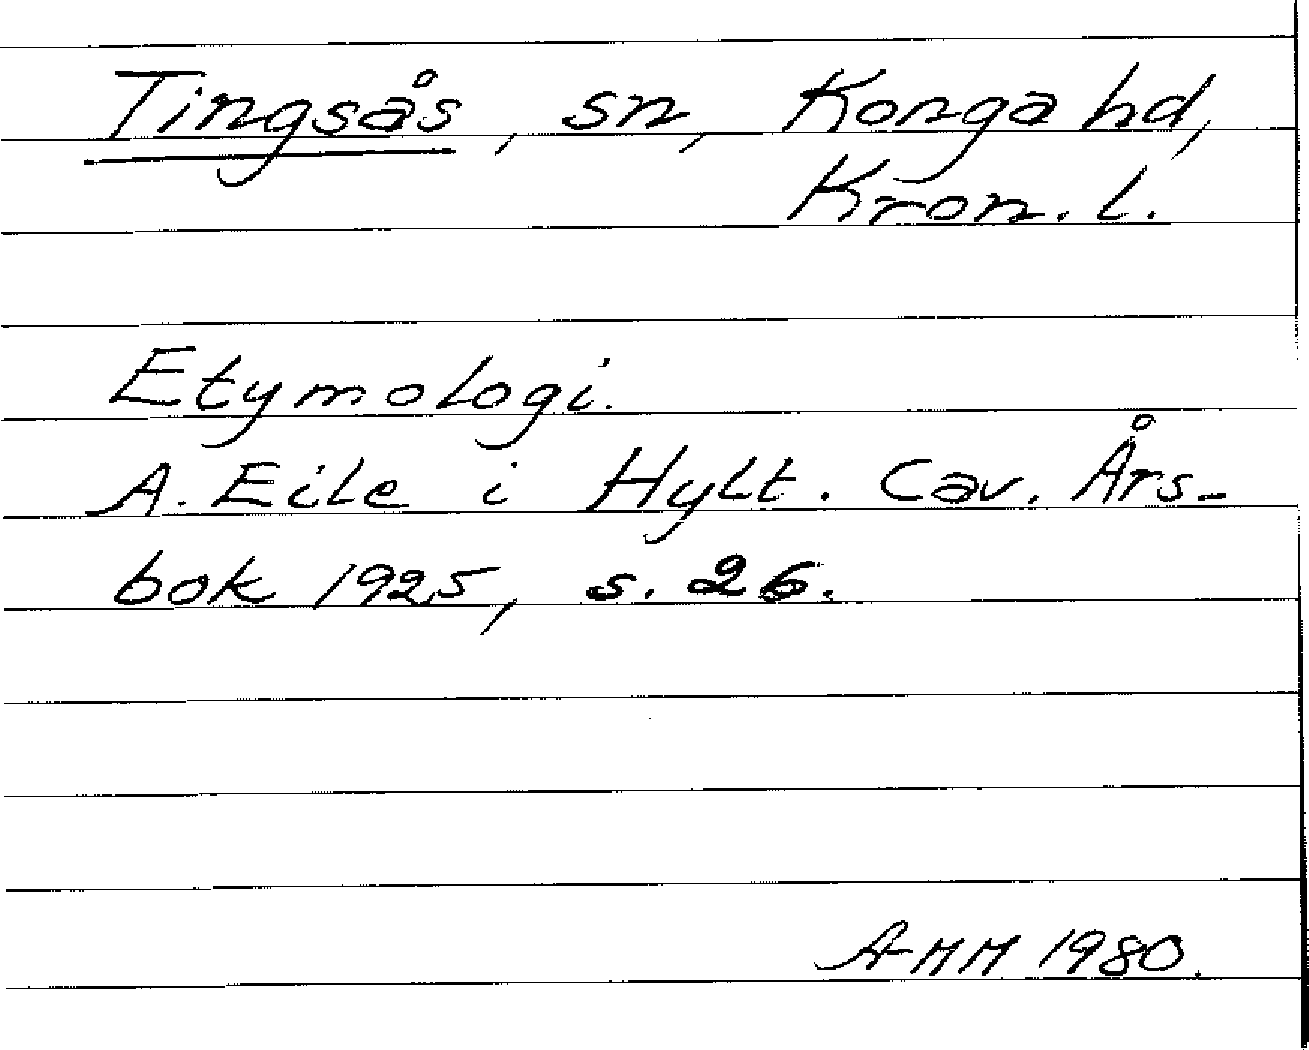 Tingsås, sn, Konga hd,
Kron. l.
Etymologi.
A. Eile i Hylt. Cav. Års-
bok 1925, s. 26.
AMM 1980.